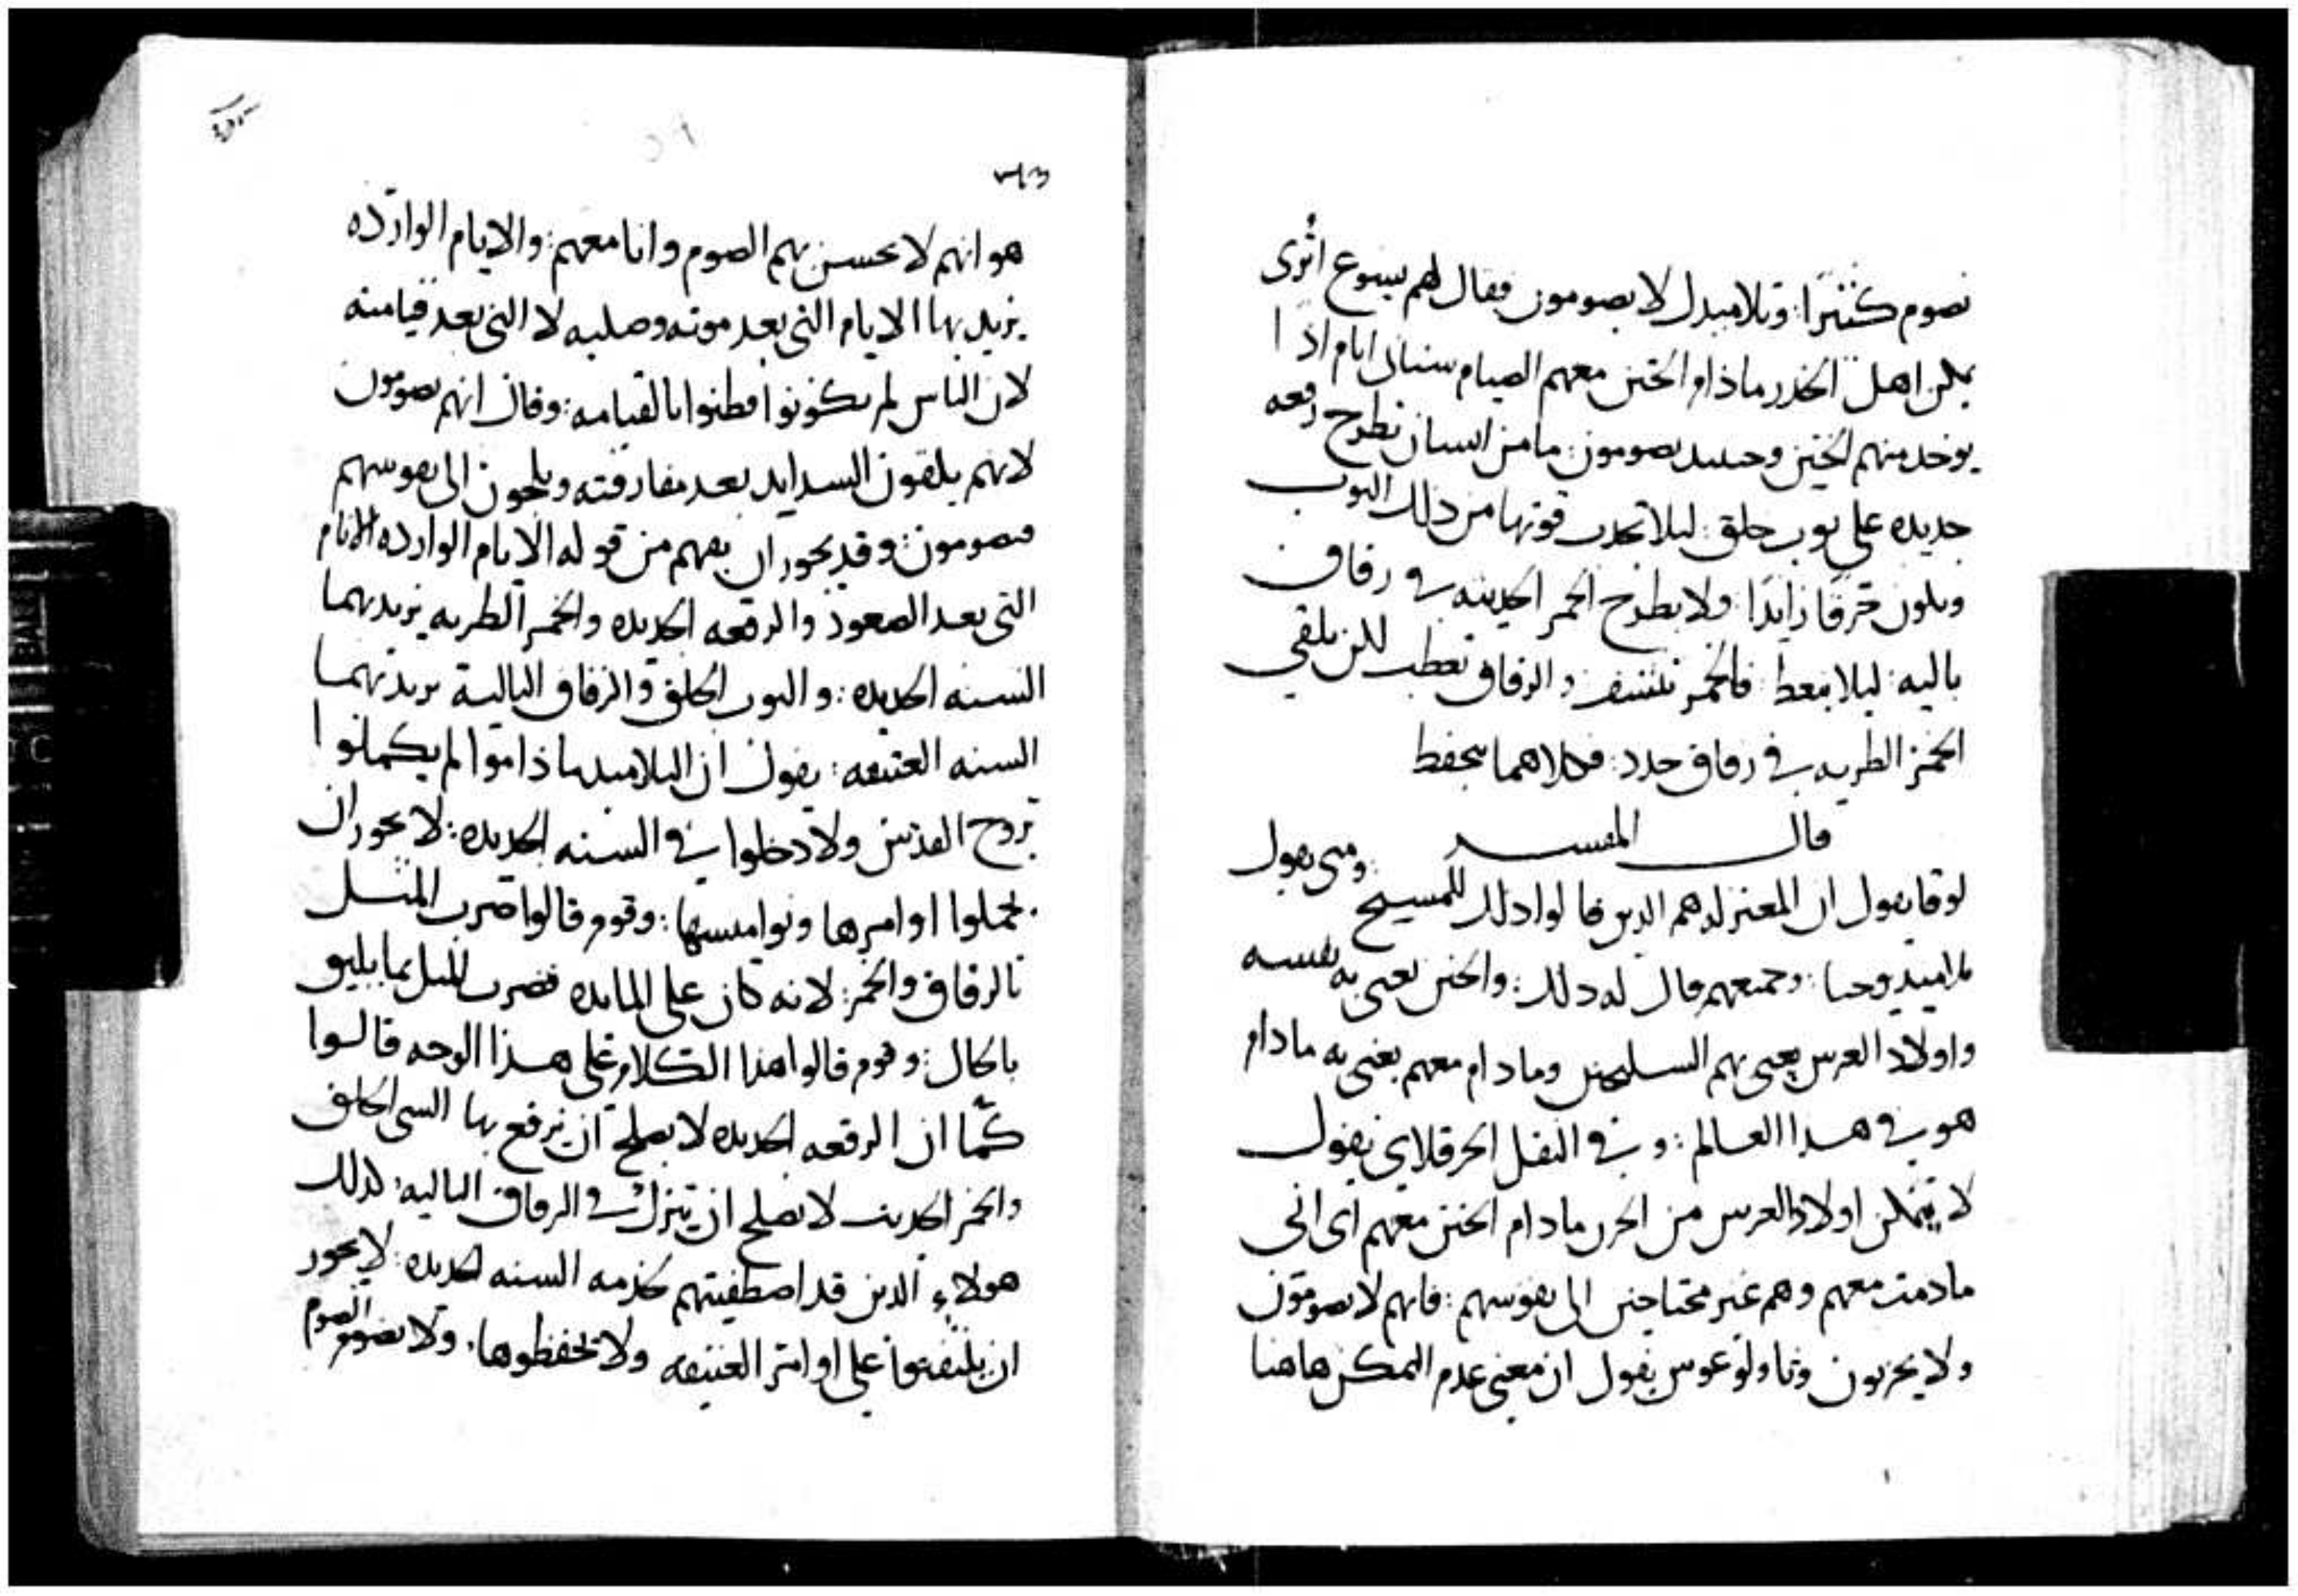 نصوم كثيرا: وتلاميدك لا يصومون فقال لهم يسوع اترى
يمكن اهل الخدر ماذام الختن معهم الصيام ستاتى ايام اذا
يوخد منهم الختن وحينيد يصومون: ما من انسان يطرح رقعه
جديده على توب خلق: ليلا تجدب قوتها من ذلك التوب
ويكون خرقا زايدا: ولا يطرح الخمر الحديثه في زقاق
باليه: ليلا فالخمر والزقاق تعطب لكن يلقى
الخمر الطريه في زقاق جدد: فكلاهما يتحفظ
قال المفسر ومتى يقول
لوقا يقول ان المعتزله هم الدين قالوا دلك للمسيح
تلاميد يوحنا: وجميعهم قال له دلك: والختن يعنى به نفسه
واولاد العرس يعنى بهم السليحين وما دام معهم يعنى به مادام
هو في هدا العالم: و في النقل الحرقلاى يقول
لا يتمكن اولاد العرس من الحزن مادام الختن معهم اى انى
مادمت معهم وهم غير محتاجين الى نفوسهم: فانهم لا يصومون
ولا يحزنون وتاولوغوس يقول ان معنى عدم التمكن هاهنا
٣٦٣
هو انهم لا يحسن بهم الصوم وانا معهم: والايام الوارده
يريد بها الايام التى بعد موته وصلبه لا التى بعد قيامته
لان الناس لم يكونوا فطنوا بالقيامه: وقال انهم يصومون
لانهم يلقون السدايد بعد مفارقته ويلجون الى نفوسهم
فيصومون: وقد يجور ان يفهم من قوله الايام الوارده الايام
التى بعد الصعود والرقعه الجديده والخمر الطريه يريد بهما
السنه الجديده: والتوب الخلق والزقاق الباليه يريد بهما
السنه العتيقه: يقول ان التلاميد ماذاموا لم يكملوا
بروح القدس ولا دخلوا في السنه الجديده: لا يجور ان
يحملوا اوامرها ونواميسها: وقوم قالوا ضرب المثل
بالزقاق والخمر: لانه كان على المايده فضرب المثل بما يليق
بالحال: وقوم قالوا هذا الكلام على هذا الوجه قالوا
كما ان الرقعه الجديده لا يصلح ان يرقع بها السى الخلق
والخمر الحديث لا يصلح ان يترك في الزقاق الباليه: كدلك
هولاء الدين قد اصطفيتهم لخدمه السنه الجديده: لا يجور
ان يلتفتوا على اوامر العتيقه ولا يحفظوها. ولا يصومو الصوم